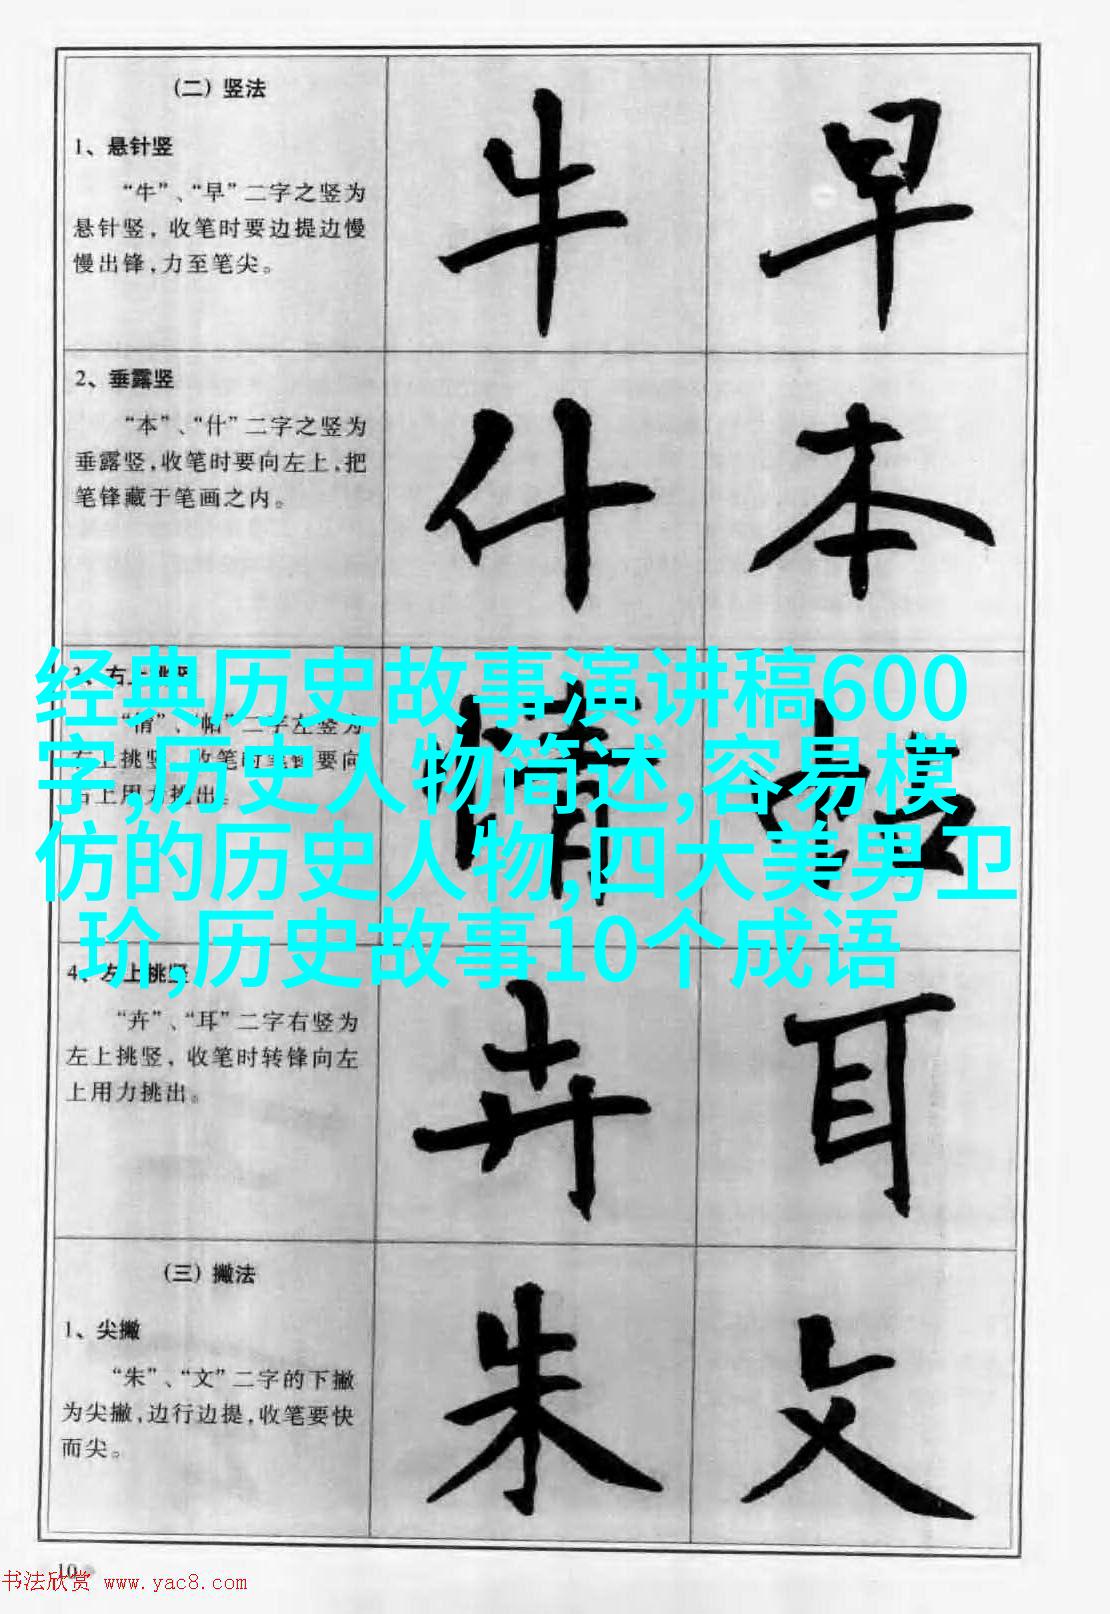 (二) 竖法
1、悬针竖
“牛”、“早”二字之竖为
悬针竖，收笔时要边提边慢
慢出锋，力至笔尖。
牛 早
2、垂露竖
“本”、“什”二字之竖为
垂露竖，收笔时要向左上，把
笔锋藏于笔画之内。
什 本
3、右上挑竖
“情”、“帖”二字左竖为
右上挑竖，收笔时笔锋要向
右上用力挑出。
情 帖
经典历史故事演讲稿600
字,历史人物简述,容易模
仿的历史人物,四大美男卫
玠,历史故事10个成语
4、左上挑竖
“卉”、“耳”二字右竖为
左上挑竖，收笔时转锋向左
上用力挑出。
卉 耳
(三) 撇法
1、尖撇
“朱”、“文”二字的下撇
为尖撇，边行边提，收笔要快
而尖。
朱 文
10
书法欣赏 www.yac8.com